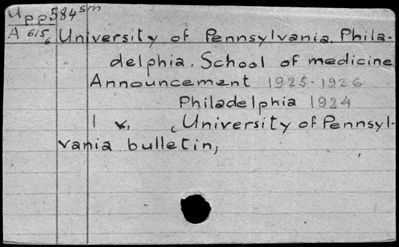 Upp584sm
A 615
University of Pennsylvania. Phila-
delphia. School of medicine
Announcement 1925-1926
Philadelphia 1924
1 v. (University of Pennsyl-
vania bulletin,